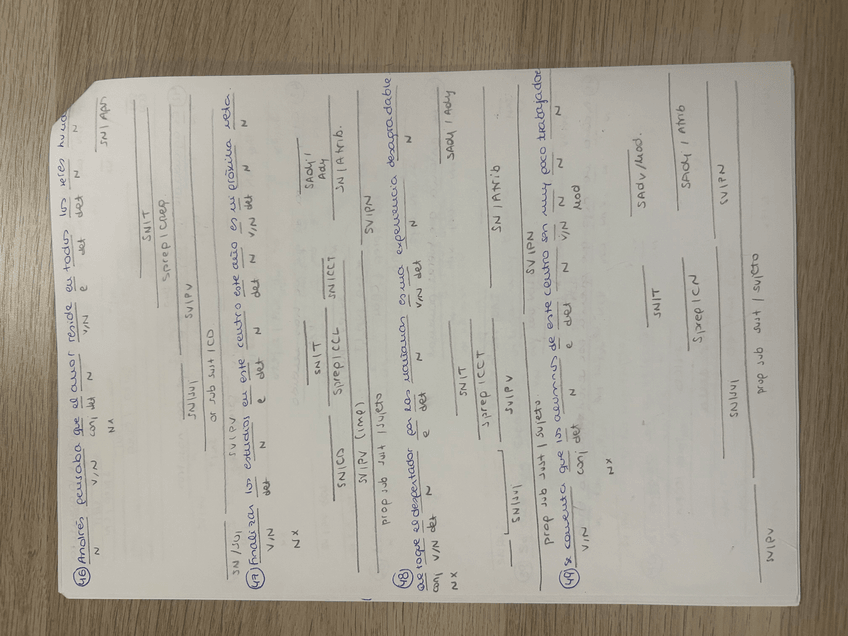 46) Andrés pensaba que el amor reside en todos los seres
N V/N conj det N V/N e det det N
NX SN/T SN/Apri
Sprep/CReg
SN/Suj SV/PV
or sub sust/CD
SN/Suj SV/PV
47) Finalizar los estudios en este centro este año es mi próxima meta.
V/N det N e det N det N V/N det N N
NX
SN/T SAdj/
Ady
SN/CD Sprep/CCL SN/CCT SN/Atrib.
SV/PV (imp) SV/PN
prop sub sust/sujeto
48) que toque el despertador por las mañanas es una experiencia desagradable
conj V/N det N e det N V/N det N N
NX
SN/T SAdj/Ady
Sprep/CCT
SN/Suj SV/PV SN/Atrib
prop sub sust/sujeto SV/PN
49) Se comenta que los alumnos de este centro son muy poco trabajador
V/N conj det N e det N V/N N N N
Mod
NX
SN/T SAdv/Mod.
Sprep/CN SAdj/Atrib
SN/Suj SV/PN
SV/PV prop sub sust/sujeto